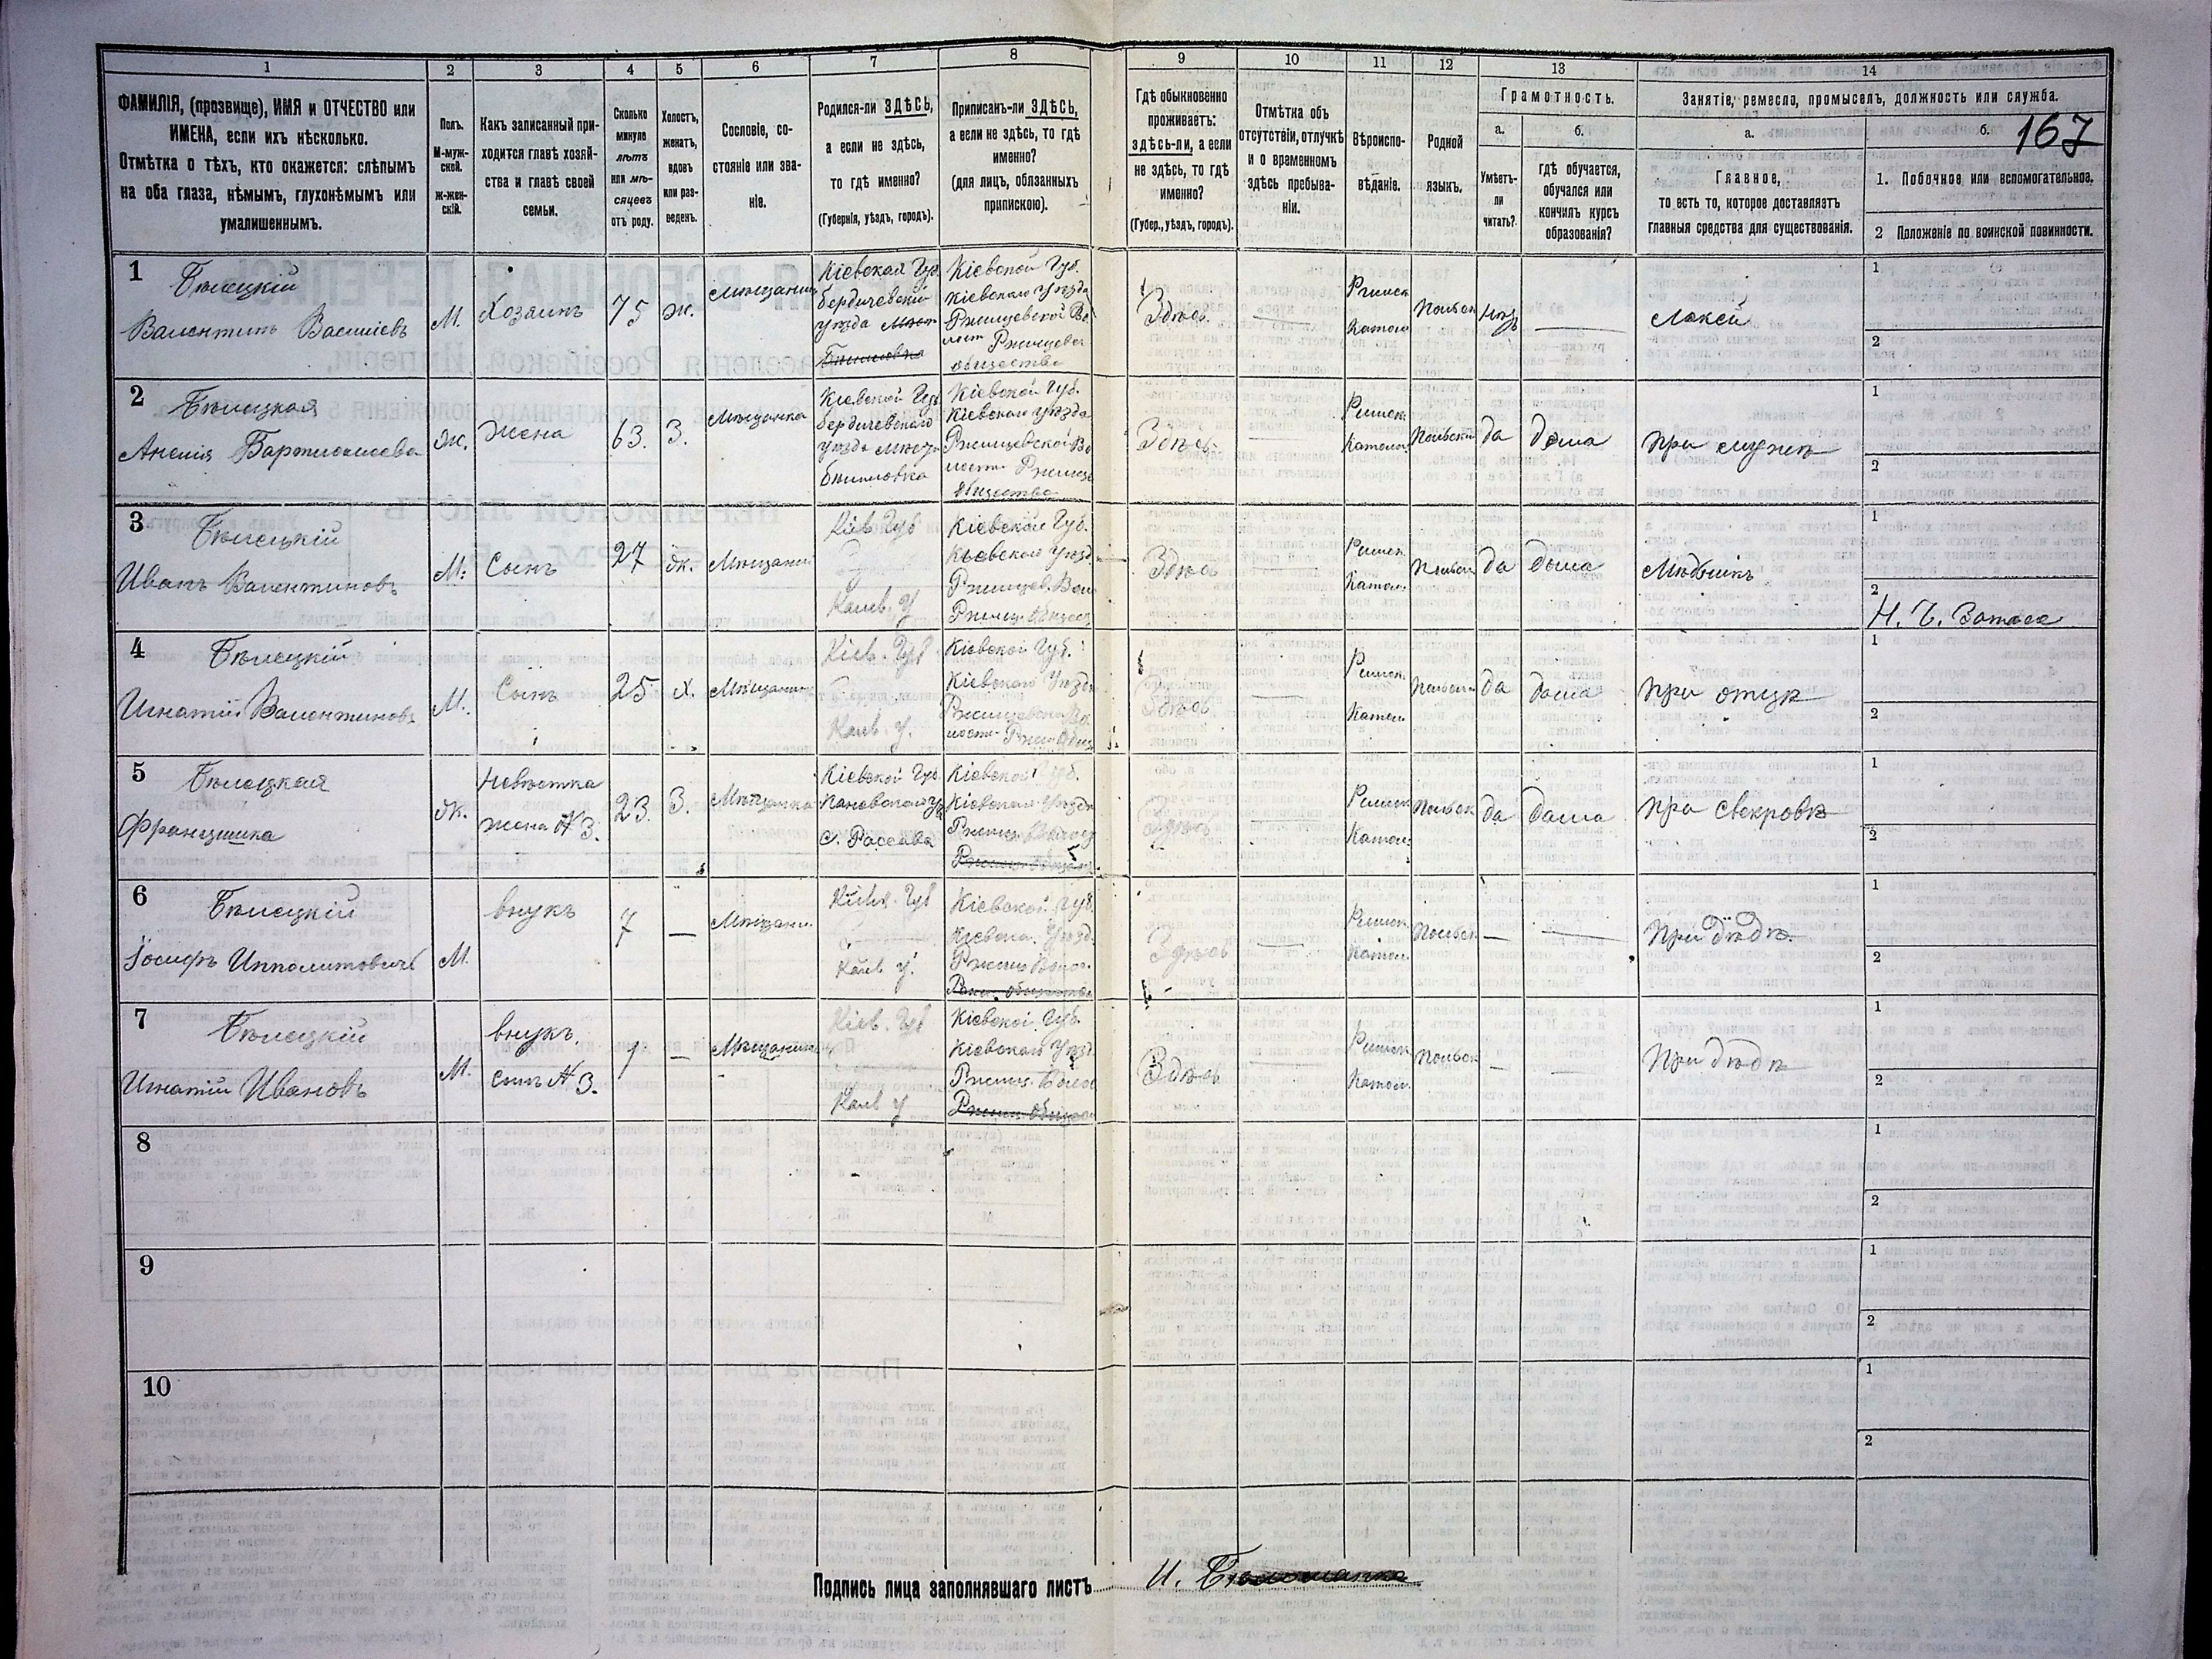 1 2 3 4 5 6 7 8 9 10 11 12 13 14
ФАМИЛІЯ, (прозвище), ИМЯ и ОТЧЕСТВО или
ИМЕНА, если ихъ нѣсколько.
Отмѣтка о тѣхъ, кто окажется: слѣпымъ
на оба глаза, нѣмымъ, глухонѣмымъ или
умалишеннымъ.
Полъ.
М-муж-
ской.
ж-жен-
скій.
Какъ записанный при-
ходится главѣ хозяй-
ства и главѣ своей
семьи.
Сколько
минуло
лѣтъ
или мѣ-
сяцевъ
отъ роду.
Холостъ,
женатъ,
вдовъ
или раз-
веденъ.
Сословіе, со-
стояніе или зва-
ніе.
Родился-ли ЗДѢСЬ,
а если не здѣсь,
то гдѣ именно?
(Губернія, уѣздъ, городъ).
Приписанъ-ли ЗДѢСЬ,
а если не здѣсь, то гдѣ
именно?
(для лицъ, обязанныхъ
припискою).
Гдѣ обыкновенно
проживаетъ:
здѣсь-ли, а если
не здѣсь, то гдѣ
именно?
(Губер., уѣздъ, городъ).
Отмѣтка объ
отсутствіи, отлучкѣ
и о временномъ
здѣсь пребыва-
ніи.
Вѣроиспо-
вѣданіе.
Родной
языкъ.
Грамотность.
а. б.
Умѣетъ-
ли
читать?
гдѣ обучается,
обучался или
кончилъ курсъ
образованія?
Занятіе, ремесло, промыселъ, должность или служба.
а. б. 167
Главное,
то есть то, которое доставляетъ
главныя средства для существованія.
1. Побочное или вспомогательное.
2 Положеніе по воинской повинности.
1
Бѣлецкій
Валентинъ Василіевъ
М.
Хозаинъ
75
ж.
Мѣщанинъ
Кіевская Губ.
бердичевскій
уѣзда
Кіевской Губ.
Кіевскаго Уѣзда
Ржищевской Во
лост Ржищева
общества
Здѣсь
Римск
Катол
Польск
Лакей
1
2
2
Бѣлецкая
Анелія
ж.
жена
63.
З.
Мѣщанка
Кіевской Губ
бердичевскаго
уѣзда
Кіевской Губ.
Кіевскаго Уѣзда
Ржищевской Во
лости
общества
Здѣсь
Римск
Катол
Польскій
да
дома
при мужѣ
1
2
3
Бѣлецкій
Иванъ Валентиновъ
М.
Сынъ
27
ж.
Мѣщанин
Кіев Губ
Канев. У
Кіевской Губ.
Кіевскаго Уѣзд
Ржищев. Вол
Здѣсь
Римск
Катол
Польск
да
дома
1
2
4
Бѣлецкій
Игнатій Валентиновъ
М.
Сынъ
25
Х.
Мѣщанинъ
Кіев. Губ
Канев. У.
Кіевской Губ.
Кіевскаго Уѣзда
Здѣсь
Римск
Катол
да
дома
при отцѣ
1
2
5
Бѣлецкая
Францишка
ж.
невѣстка
жена № 3.
23.
З.
Мѣщанка
Кіевской Губ.
Каневскаго Уѣ
с. Россава
Кіевской Губ.
Кіевскаго Уѣзда
Здѣсь
Римск
Катол
Польск
да
дома
при свекровѣ
1
2
6
Бѣлецкій
Іосифъ Ипполитовичъ
М.
внукъ
7
—
Мѣщанин
Кіев. Губ
Канев У.
Кіевской Губ.
Здѣсь
Римск
Катол
Польск
—
—
При дѣдѣ.
1
2
7
Бѣлецкій
Игнатій Ивановъ
М.
внукъ.
сынъ № 3.
1
—
Мѣщанинъ
Кіев. Губ
Канев У
Кіевской Губ.
Кіевскаго Уѣзд.
Здѣсь
Римск
Катол
Польск
—
—
При дѣдѣ
1
2
8
1
2
9
1
2
10
1
2
Подпись лица заполнявшаго листъ И.